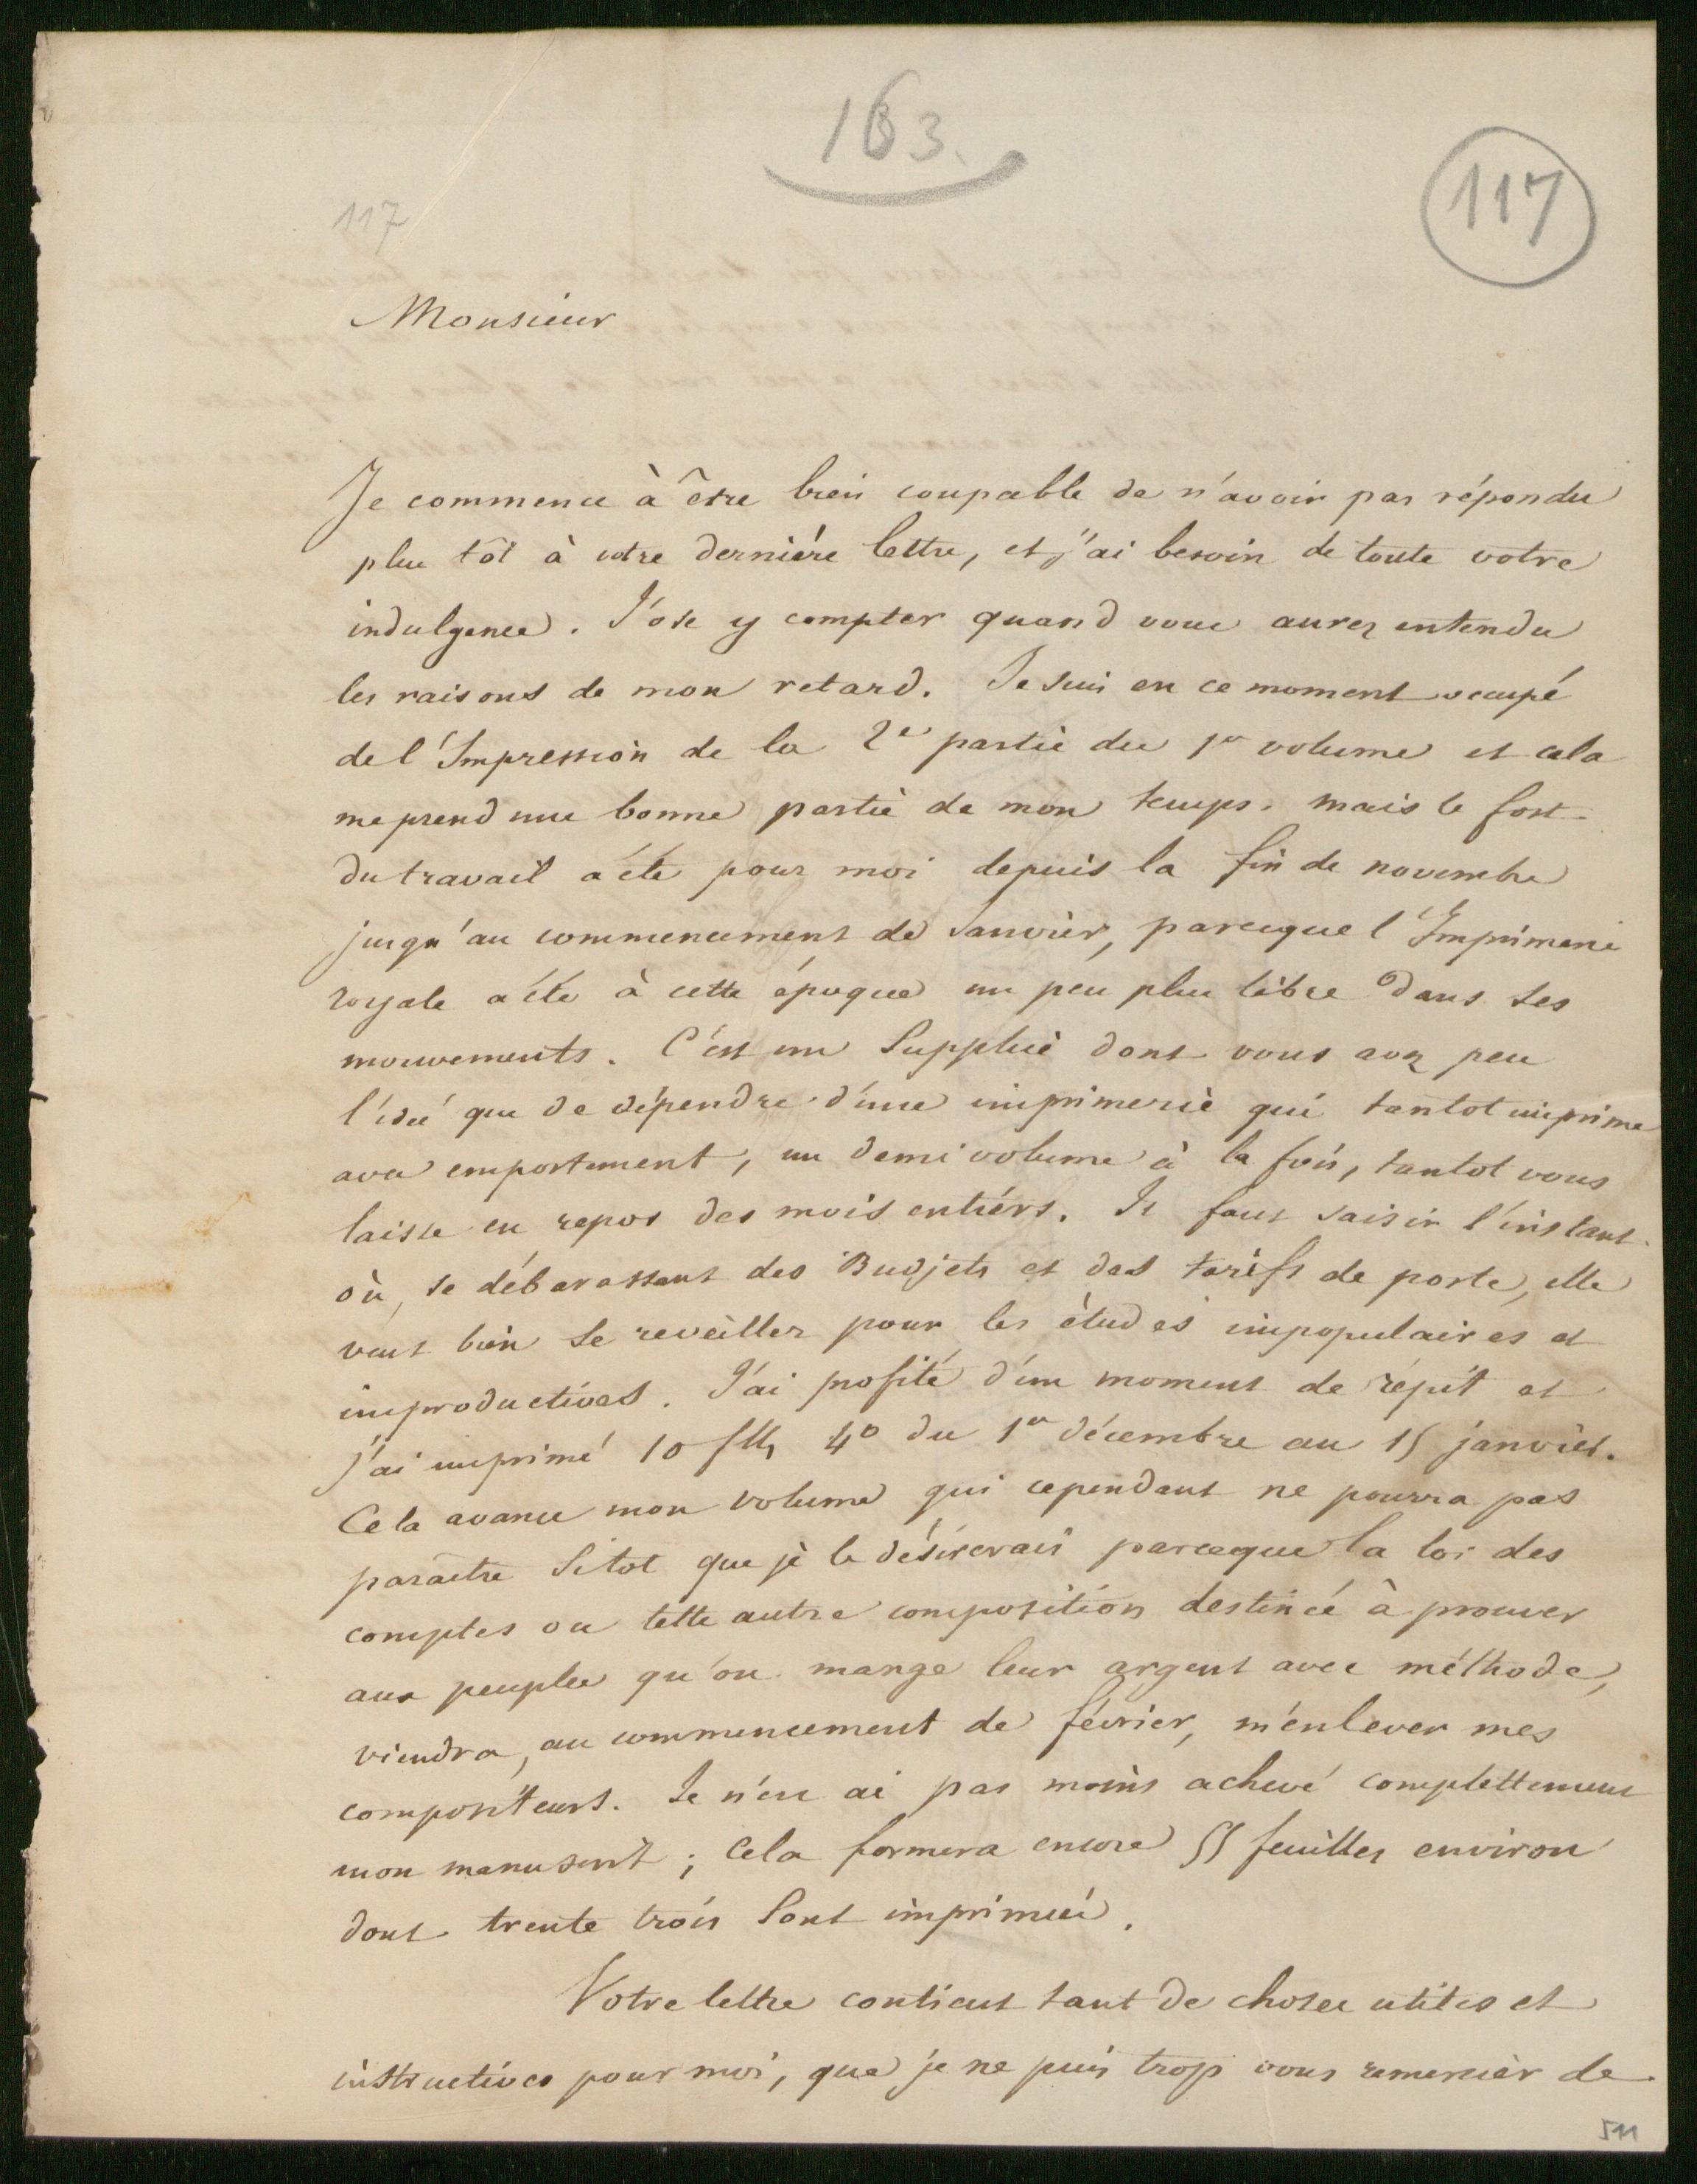 163.
117
117
Monsieur
Je commence à être bien coupable de n'avoir pas répondu
plus tôt à votre dernière lettre, et j'ai besoin de toute votre
indulgence. J'ose y compter quand vous aurez entendu
les raisons de mon retard. Je suis en ce moment occupé
de l'Impression de la 2e partie du 1er volume et cela
me prend une bonne partie de mon temps. mais le fort
du travail a été pour moi depuis la fin de novembre
jusqu'au commencement de Janvier, parceque l'Imprimerie
royale a été à cette époque un peu plus libre dans ses
mouvements. C'est un Supplice dont vous avez peu
l'idée que de dépendre d'une imprimerie qui tantot imprime
avec emportement, un demi volume à la fois, tantot vous
laisse en repos des mois entiérs. Il faut saisir l'instant
où, se débarassant des Budjets et des tarifs de poste, elle
veut bien se reveiller pour les études impopulaires et
improductives. J'ai profité d'un moment de répit et
j'ai imprimé 10 flls 4o du 1er décembre au 15 janvier.
Cela avance mon volume qui cependant ne pourra pas
paraitre Sitot que je le désirerais parceque la loi des
comptes ou telle autre composition destinée à prouver
aux peuples qu'on mange leur argent avec méthode,
viendra, au commencement de février, m'enlever mes
compositeurs. Je n'en ai pas moins achevé complettement
mon manuscrit ; Cela formera encore 55 feuilles environ
dont trente trois Sont imprimées.
Votre lettre contient tant de choses utiles et
instructives pour moi, que je ne puis trop vous remercier de
511